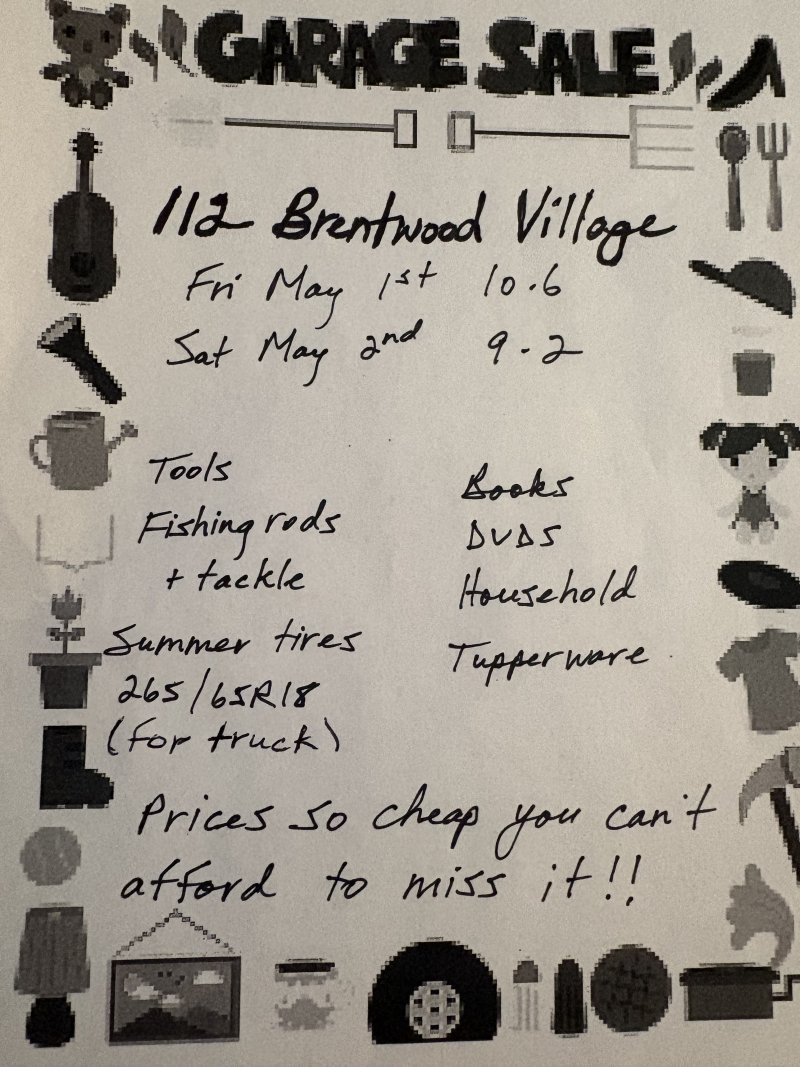 GARAGE SALE
112 Brentwood Village
Fri May 1st 10.6
Sat May 2nd 9-2
Tools
Fishing rods
+ tackle
Summer tires
265/65R18
(for truck)
Books
DVDS
Household
Tupperware
Prices so cheap you can't
afford to miss it!!